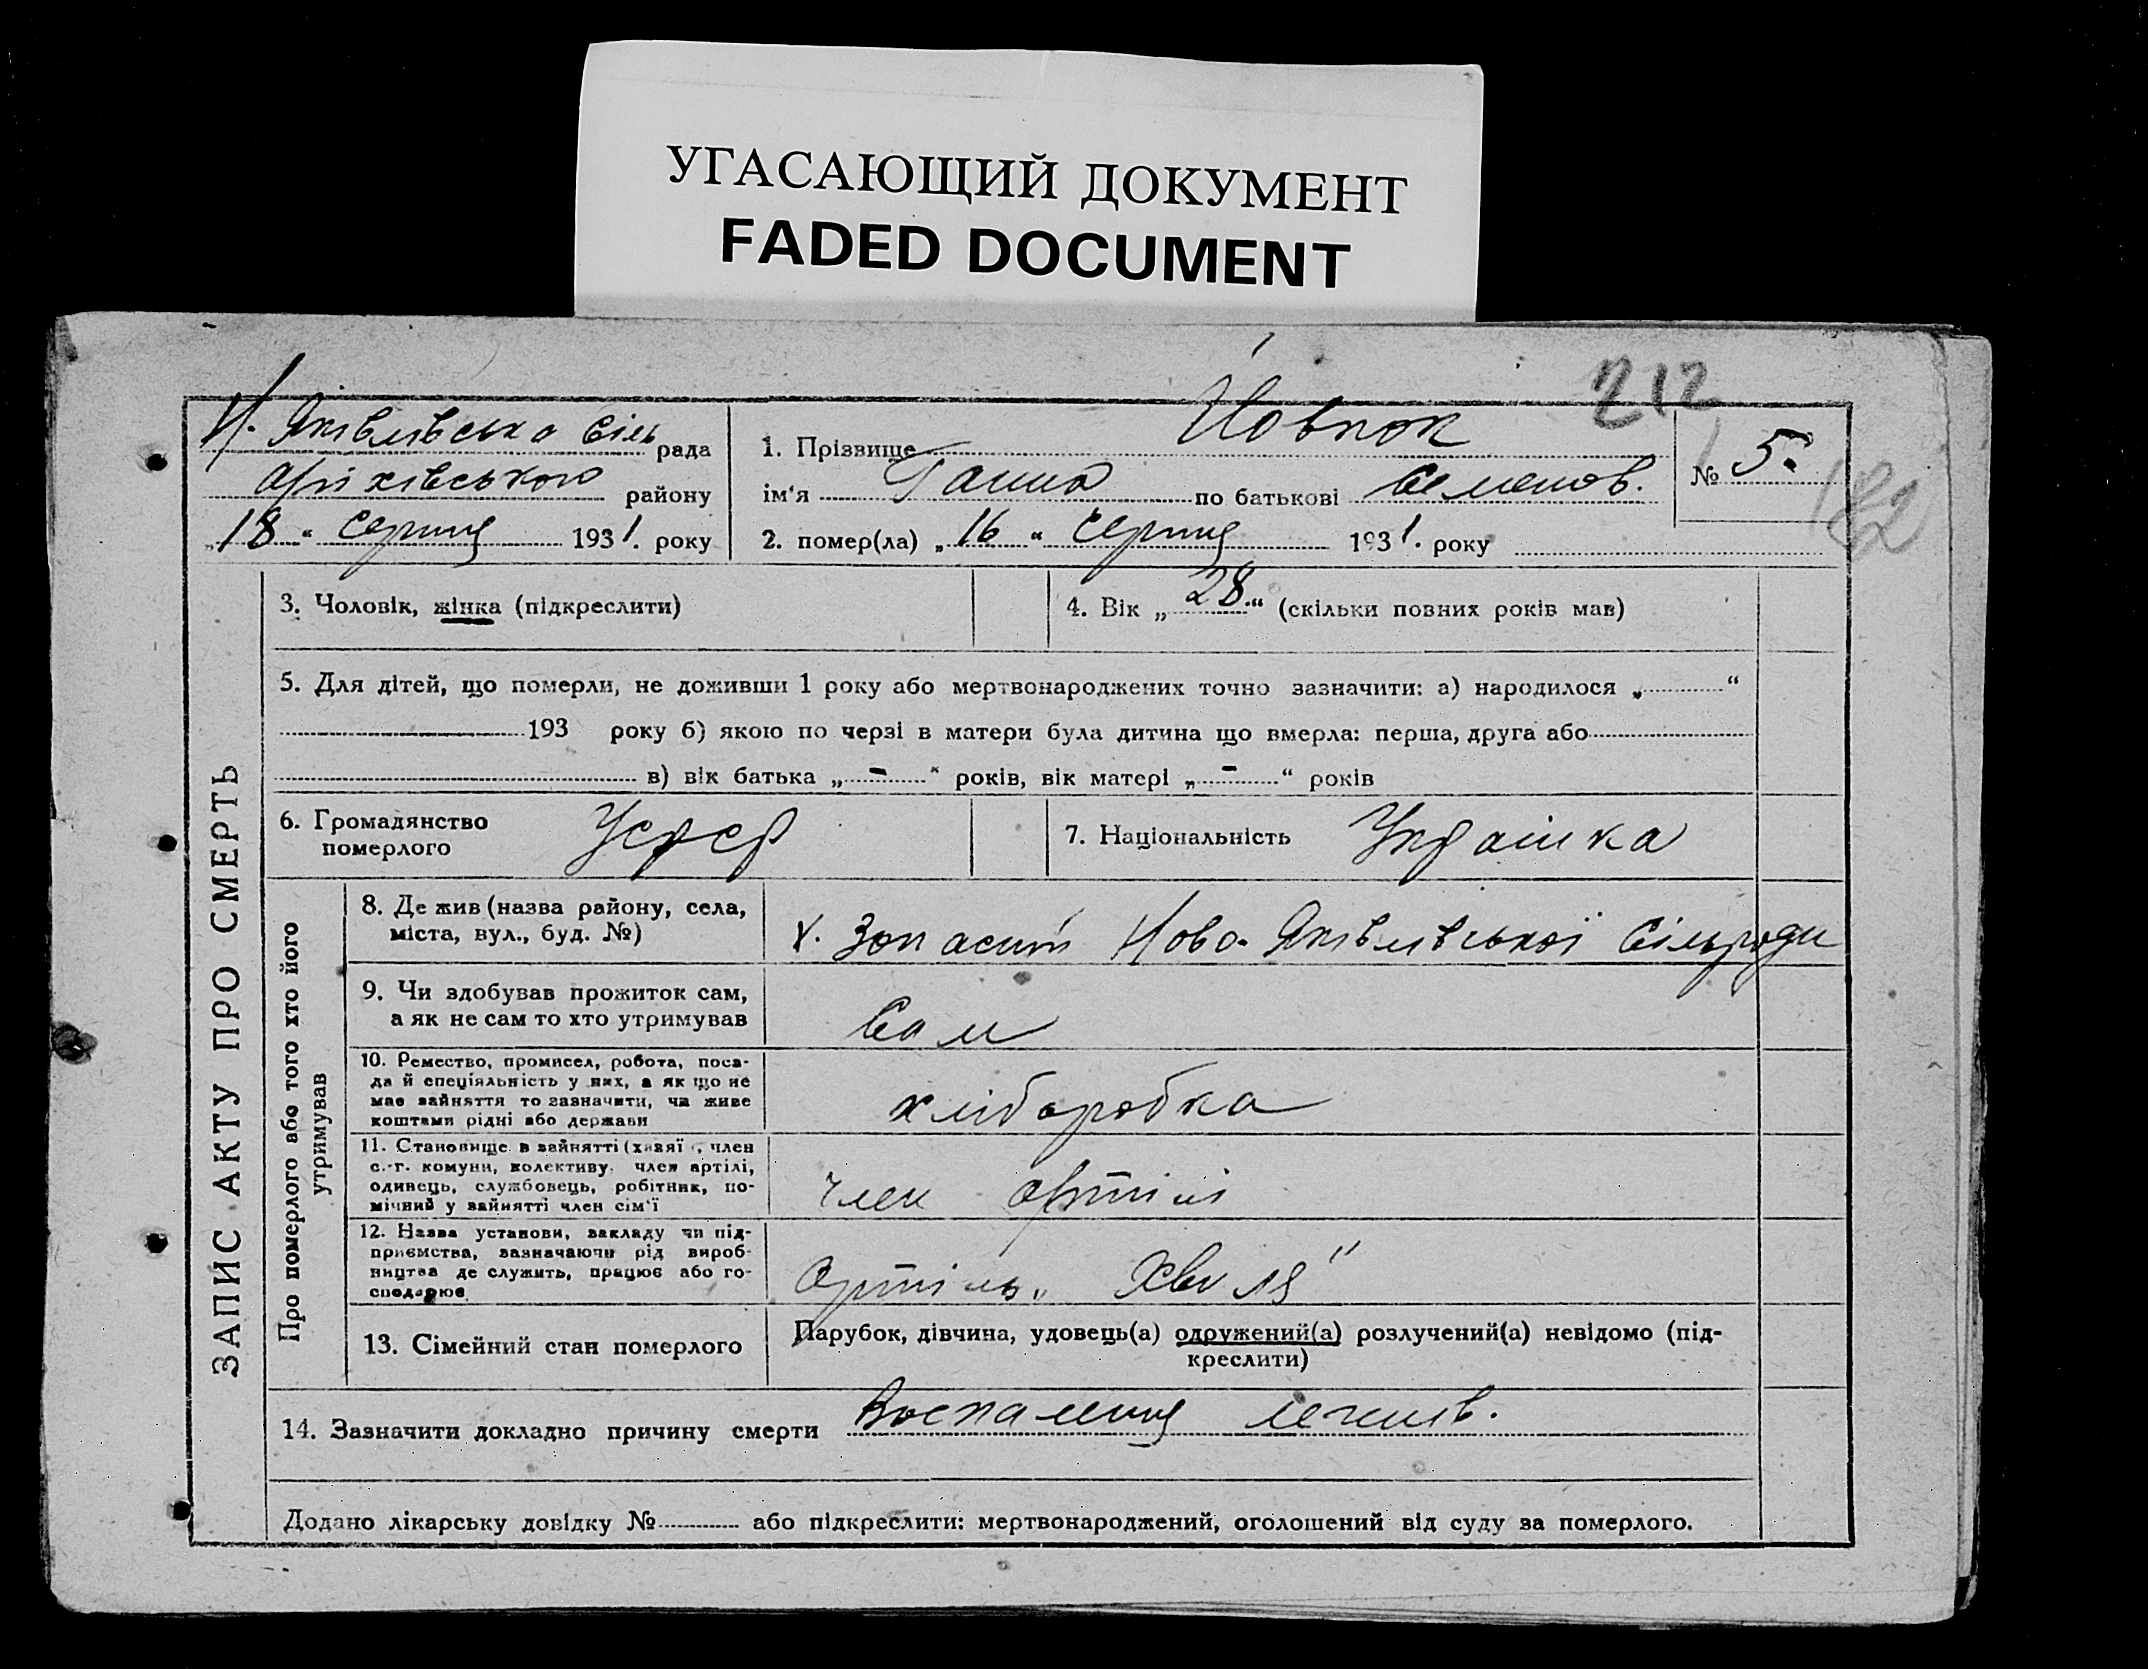 УГАСАЮЩИЙ ДОКУМЕНТ
FADED DOCUMENT
212
Н. Яківлівська Сіль рада
Оріхівського району
„18“ серпня 1931. року
1. Прізвище Йовпок
ім‘я Ганна по батькові Семенов.
2. помер(ла) „16“ серпня 1931. року
№ 5.
182
ЗАПИС АКТУ ПРО СМЕРТЬ
3. Чоловік, жінка (підкреслити)
4. Вік „28“ (скільки повних років мав)
5. Для дітей, що померли, не доживши 1 року або мертвонароджених точно зазначити: а) народилося „ “
193 року б) якою по черзі в матери була дитина що вмерла: перша, друга або
в) вік батька „ - “ років, вік матері „ - “ років
6. Громадянство
померлого
УСРСР
7. Національність Українка
Про померлого або того хто його
утримував
8. Де жив (назва району, села,
міста, вул., буд. №)
х. Ново-Яківлівської Сільради
9. Чи здобував прожиток сам,
а як не сам то хто утримував
Сам
10. Ремество, промисел, робота, поса-
да й спеціяльність у них, а як що не
має зайняття то зазначити, чи живе
коштами рідні або держави
хліборобка
11. Становище в зайнятті (хазяї , член
с.-г. комуни, колективу, член артілі,
одинець, службовець, робітник, по-
мічний у зайнятті член сім‘ї
член артілі
12. Назва установи, закладу чи під-
приємства, зазначаючи рід вироб-
ництва де служить, працює або го-
сподарює
Артіль „Хвиля“
13. Сімейний стан померлого
Парубок, дівчина, удовець(а) одружений(а) розлучений(а) невідомо (під-
креслити)
14. Зазначити докладно причину смерти Воспаления легків.
Додано лікарську довідку № або підкреслити: мертвонароджений, оголошений від суду за померлого.